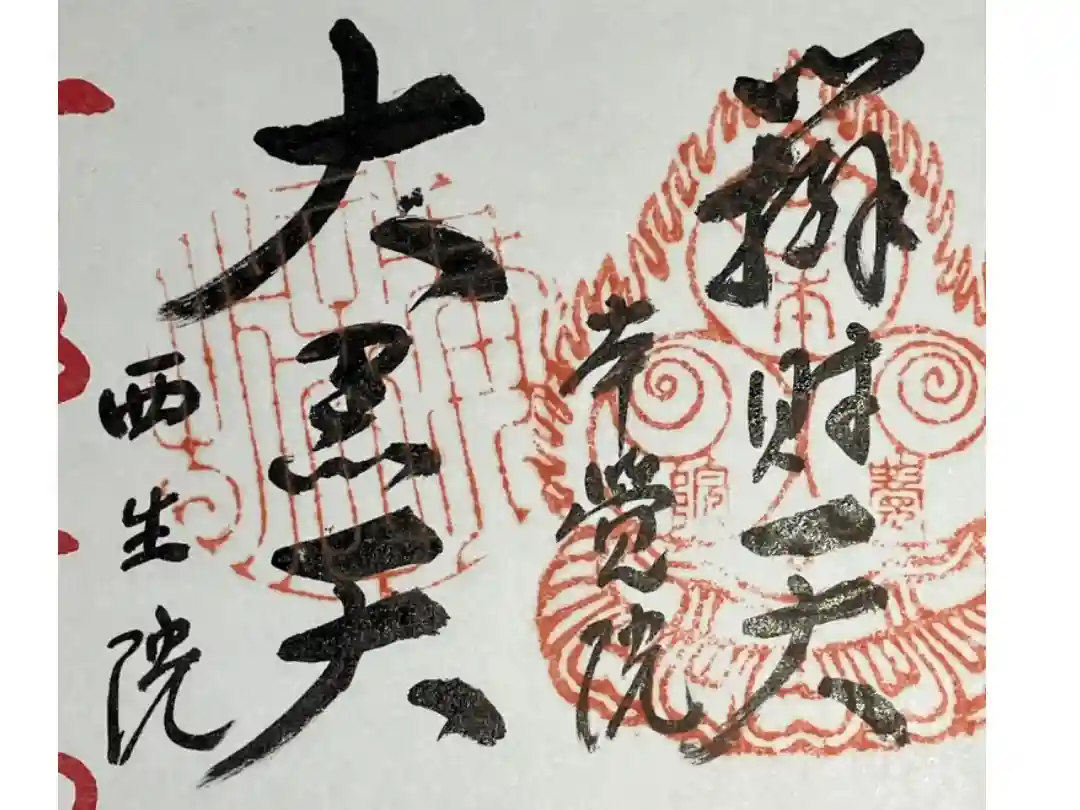 辨財天
本覺院
大黒天
西生院